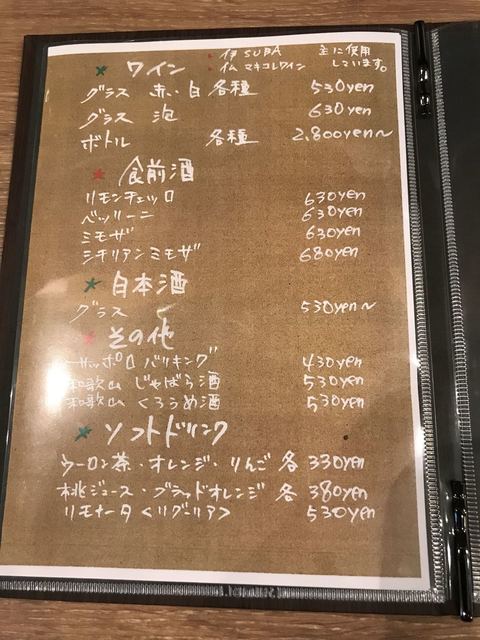 ワイン
伊 SUBA 主に使用
仏 マキコレワイン しています。
グラス 赤・白 各種 530yen
グラス 泡 630yen
ボトル 各種 2.800yen～
食前酒
リモンチェッロ 630yen
ベッリーニ 630yen
ミモザ 630yen
シチリアンミモザ 680yen
日本酒
グラス 530yen～
その他
サッポロ バリキング 430yen
和歌山 じゃばら酒 530yen
和歌山 くろうめ酒 530yen
ソフトドリンク
ウーロン茶・オレンジ・りんご 各 330yen
桃ジュース・ブラッドオレンジ 各 380yen
リモナータ〈リグーリア〉 530yen